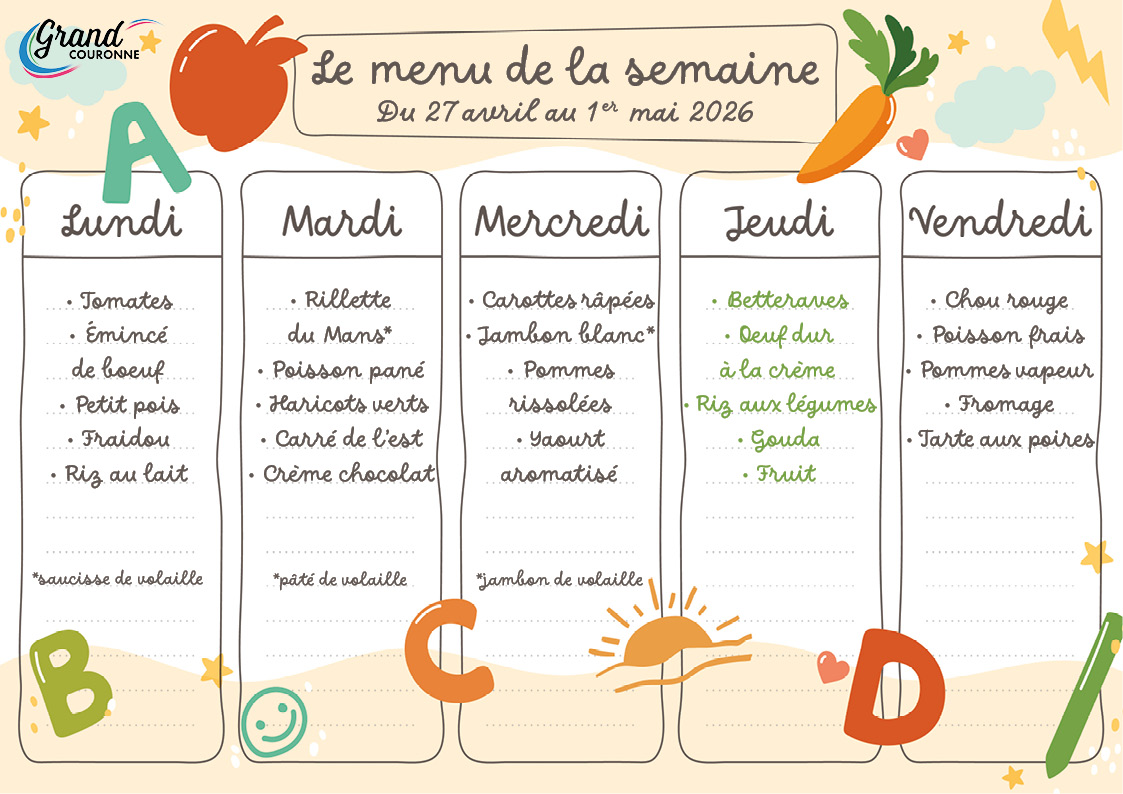 Grand
COURONNE
Le menu de la semaine
Du 27 avril au 1er mai 2026
A
Lundi
• Tomates
• Émincé
de boeuf
• Petit pois
• Fraidou
• Riz au lait
*saucisse de volaille
Mardi
• Rillette
du Mans*
• Poisson pané
• Haricots verts
• Carré de l'est
• Crème chocolat
*pâté de volaille
Mercredi
• Carottes râpées
• Jambon blanc*
• Pommes
rissolées
• Yaourt
aromatisé
*jambon de volaille
Jeudi
• Betteraves
• Oeuf dur
à la crème
• Riz aux légumes
• Gouda
• Fruit
Vendredi
• Chou rouge
• Poisson frais
• Pommes vapeur
• Fromage
• Tarte aux poires
B
C
D